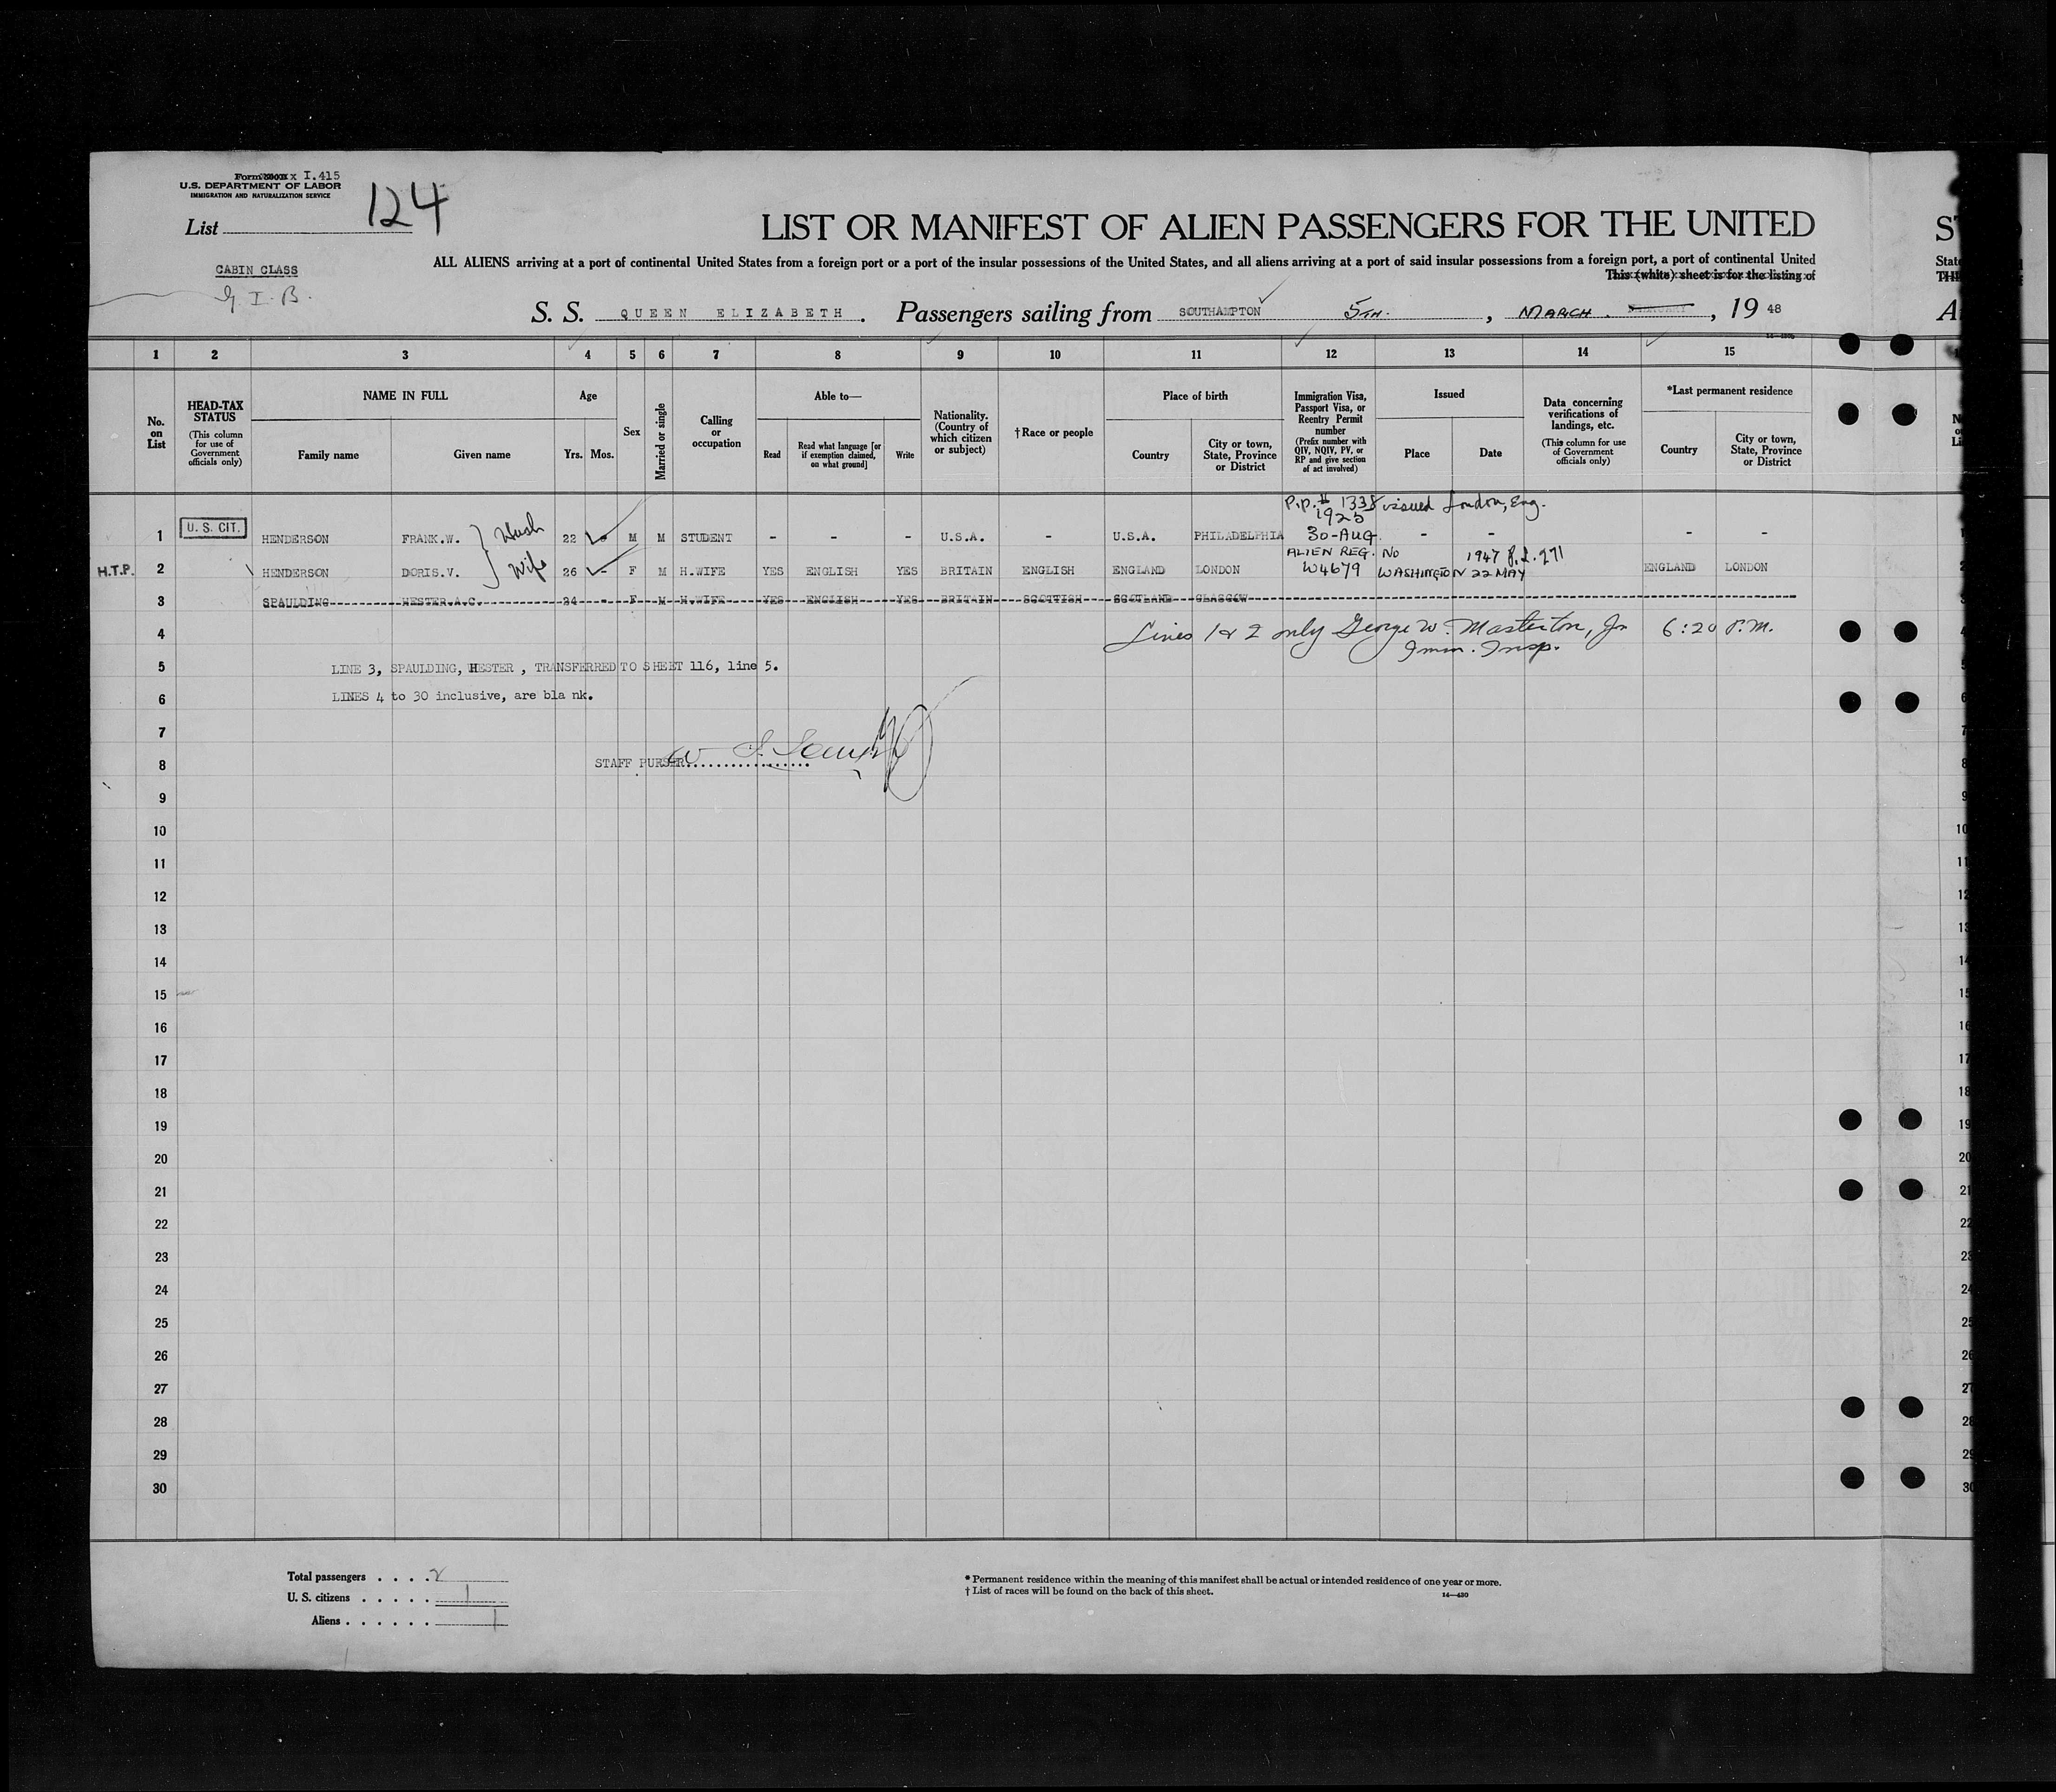 Form I.415
U.S. DEPARTMENT OF LABOR
IMMIGRATION AND NATURALIZATION SERVICE
List 124
CABIN CLASS
G I B.
LIST OR MANIFEST OF ALIEN PASSENGERS FOR THE UNITED
ALL ALIENS arriving at a port of continental United States from a foreign port or a port of the insular possessions of the United States, and all aliens arriving at a port of said insular possessions from a foreign port, a port of continental United
This (white) sheet is for the listing of
S. S. QUEEN ELIZABETH . Passengers sailing from SOUTHAMPTON 5TH. , MARCH. , 19 48
1 2 3 4 5 6 7 8 9 10 11 12 13 14 15
No. on List
HEAD-TAX STATUS (This column for use of Government officials only)
NAME IN FULL
Family name Given name
Age
Yrs. Mos.
Sex
Married or single
Calling or occupation
Able to—
Read Read what language [or if exemption claimed, on what ground] Write
Nationality. (Country of which citizen or subject)
†Race or people
Place of birth
Country City or town, State, Province or District
Immigration Visa, Passport Visa, or Reentry Permit number (Prefix number with QIV, NQIV, PV, or RP and give section of act involved)
Issued
Place Date
Data concerning verifications of landings, etc. (This column for use of Government officials only)
*Last permanent residence
Country City or town, State, Province or District
P.P. # 1338 issued London, Eng.
1925
1 U. S. CIT. HENDERSON FRANK.W. Hush 22 - M M STUDENT - - - U.S.A. - U.S.A. PHILADELPHIA 30-AUG. - - - -
ALIEN REG. No 1947
H.T.P. 2 HENDERSON DORIS.V. Wife 26 - F M H.WIFE YES ENGLISH YES BRITAIN ENGLISH ENGLAND LONDON W4679 WASHINGTON 22 MAY ENGLAND LONDON
3 SPAULDING HESTER.A.C. 24 - F M H.WIFE YES ENGLISH YES BRITAIN SCOTTISH SCOTLAND GLASGOW
4 Lines 1 & 2 only George W. Masterton, Jr 6:20 P.M.
Imm. Insp.
5 LINE 3, SPAULDING, HESTER , TRANSFERRED TO SHEET 116, line 5.
6 LINES 4 to 30 inclusive, are bla nk.
7
8 STAFF PURSER..................
9
10
11
12
13
14
15
16
17
18
19
20
21
22
23
24
25
26
27
28
29
30
Total passengers . . . . 2
U. S. citizens . . . . . 1
Aliens . . . . . . 1
* Permanent residence within the meaning of this manifest shall be actual or intended residence of one year or more.
† List of races will be found on the back of this sheet.
14—430